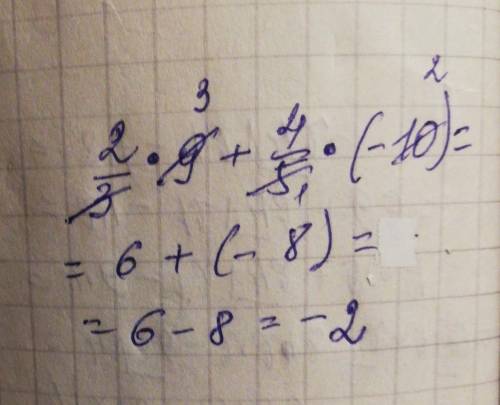 2/3 · 9 3 + 4/5 1 · (-10) 2 =
= 6 + (- 8) =
= 6 - 8 = - 2